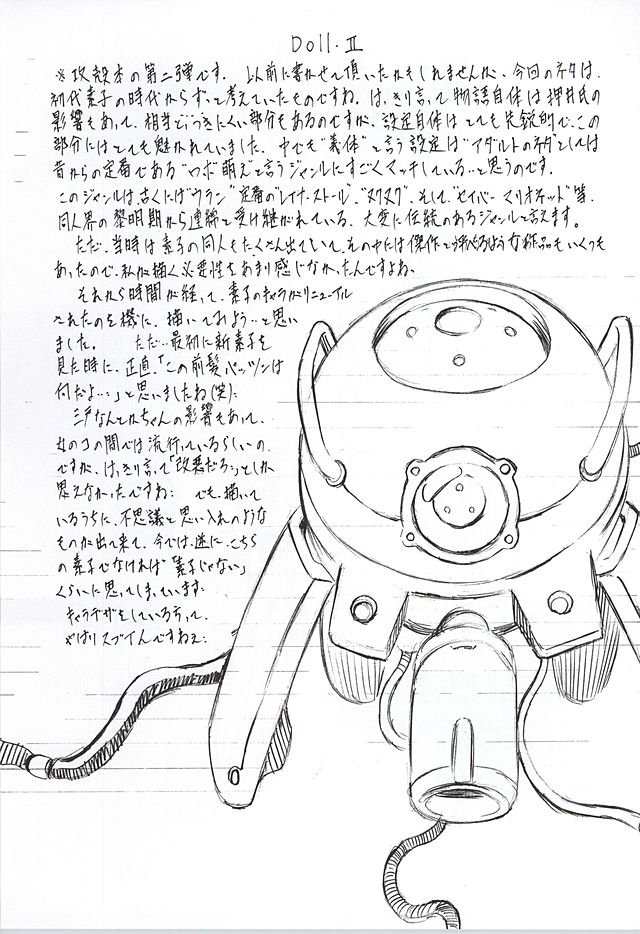 Doll.Ⅱ
※攻殻本の第二弾です。以前に書かせて頂いたかもしれませんが、今回のネタは、
初代素子の時代からずっと考えていたものですね。はっきり言って物語自体は押井氏の
影響もあって、相当とっつきにくい部分もあるのですが、設定自体はとても先鋭的で、この
部分にはとても魅かれていました。中でも"義体"と言う設定は"アダルトのネタ"としては
昔からの定番である"ロボ萌え"と言うジャンルにすごくマッチしている…と思うのです。
このジャンルは、古くには"ウラン"定番の"レイナ・ストール"、"ヌクヌク"、そして、"セイバーマリオネット"等、
同人界の黎明期から連綿と受け継がれている、大変に伝統のあるジャンルと言えます。
ただ、当時は素子の同人もたくさん出ていて、その中には傑作と呼べるような作品もいくつも
あったので、私が描く必要性をあまり感じなかったんですよね。
それから時間が経って、素子のキャラがリニューアル
されたのを機に、描いてみよう…と思い
ました。ただ…最初に新素子を
見た時に、正直、「この前髪パッツンは
何だよ…」と思いましたね(笑)…
三戸なんとかちゃんの影響もあって、
女のコの間では流行っているらしいの
ですが、はっきり言って「改悪だろ…」としか
思えなかったですね… でも、描いて
いるうちに、不思議と思い入れのような
ものが出て来て、今では、逆に、こちら
の素子でなければ「素子じゃない」
くらいに思ってしまっています…
キャラデザをしている方って、
やはりスゴイんですねぇ…